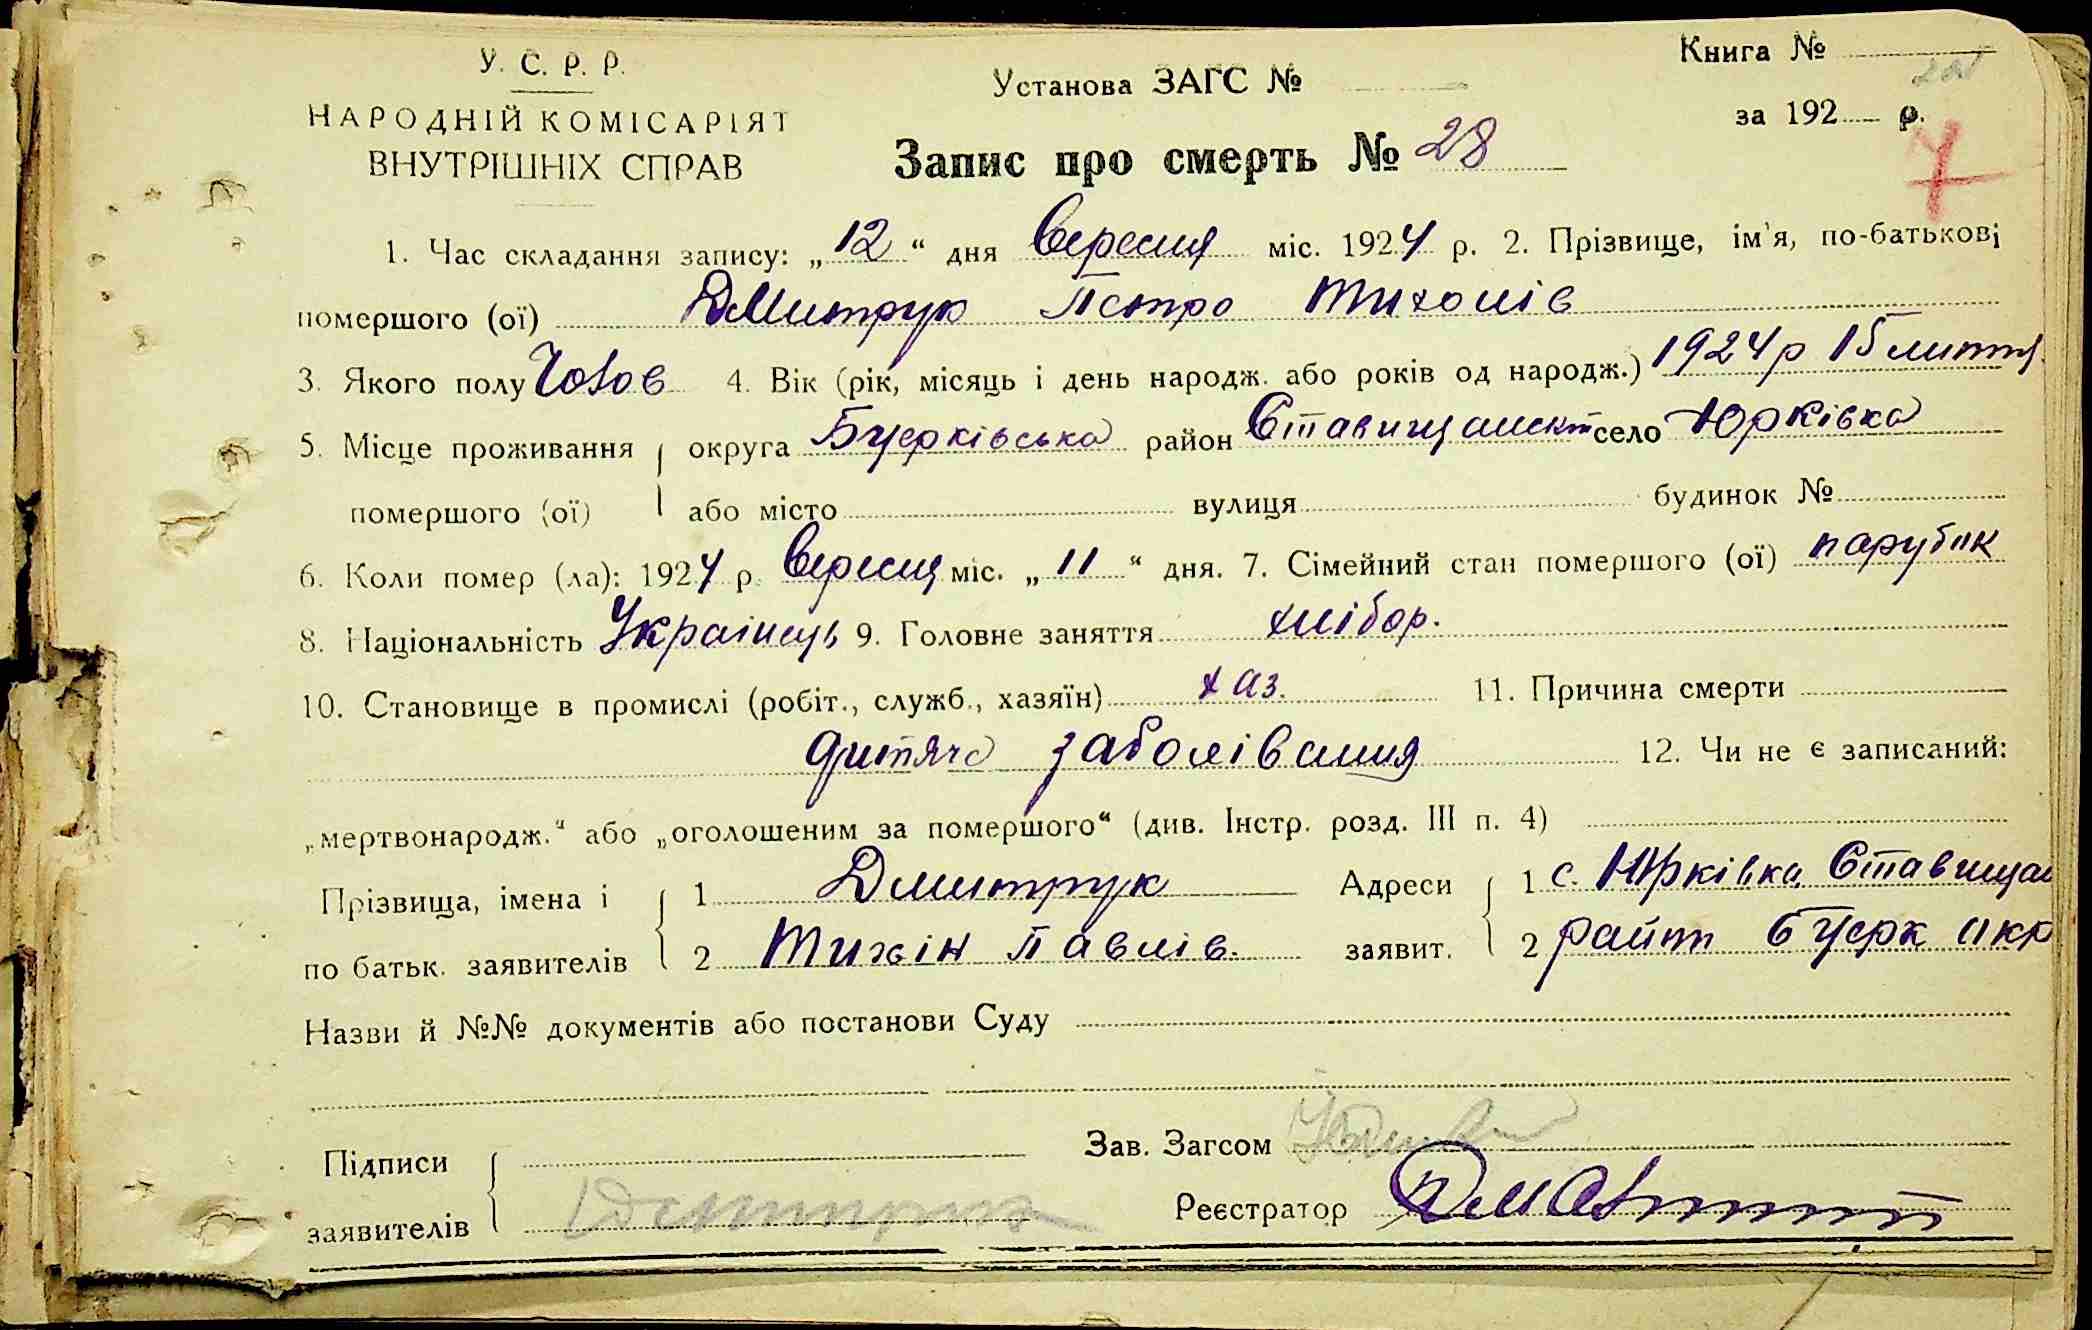 У. С. Р. Р.
НАРОДНІЙ КОМІСАРІЯТ
ВНУТРІШНІХ СПРАВ
Установа ЗАГС №
Запис про смерть № 28
Книга №
за 192 р.
7
1. Час складання запису: „12“ дня Вересня міс. 1924 р. 2. Прізвище, ім'я, по-батькові
помершого (ої) Дмитрук Петро Тихонів
3. Якого полу Чолов 4. Вік (рік, місяць і день народж. або років од народж.) 1924 р 15 липня
5. Місце проживання округа Бцерківська район Ставищанськ село Юрківка
помершого (ої) або місто вулиця будинок №
6. Коли помер (ла): 1924 р. Вересня міс. „11“ дня. 7. Сімейний стан помершого (ої) парубок
8. Національність Українець 9. Головне заняття хлібор.
10. Становище в промислі (робіт., служб., хазяїн) хаз. 11. Причина смерти
дитяче заболівання 12. Чи не є записаний:
„мертвонародж.“ або „оголошеним за помершого“ (див. Інстр. розд. III п. 4)
Прізвища, імена і 1 Дмитрук Адреси 1 с. Юрківка, Ставищан
по батьк. заявителів 2 Тихін Павлів. заявит. 2 район Бцерк окр
Назви й №№ документів або постанови Суду
Зав. Загсом
Підписи
Реєстратор
заявителів